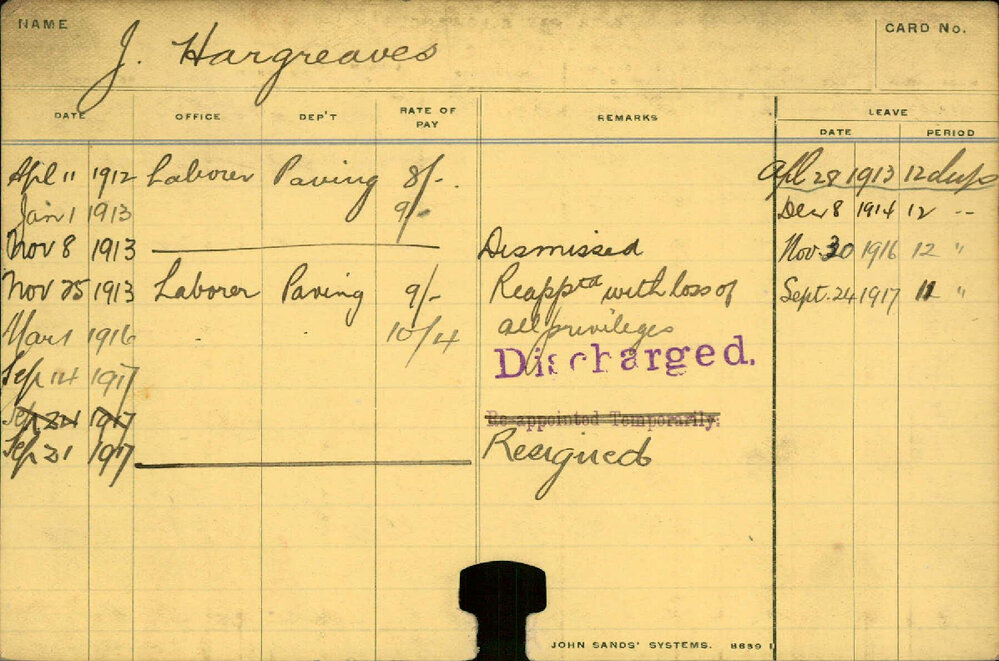 NAME J. Hargreaves CARD No.
DATE OFFICE DEP'T RATE OF PAY REMARKS LEAVE
DATE PERIOD
Apl 11 1912 Laborer Paving 8/-. Apl 28 1913 12 days
Jan 1 1913 9/- Dec 8 1914 12 "
Nov 8 1913 Dismissed Nov. 30 1916 12 "
Nov 25 1913 Laborer Paving 9/- Reapptd with loss of Sept. 24 1917 11 "
Mar 1 1916 10/4 all privileges
Sep 14 1917 Discharged.
Sep 24 1917 Re-appointed Temporarily.
Sep 21 1917 Resigned
JOHN SANDS' SYSTEMS. 8659